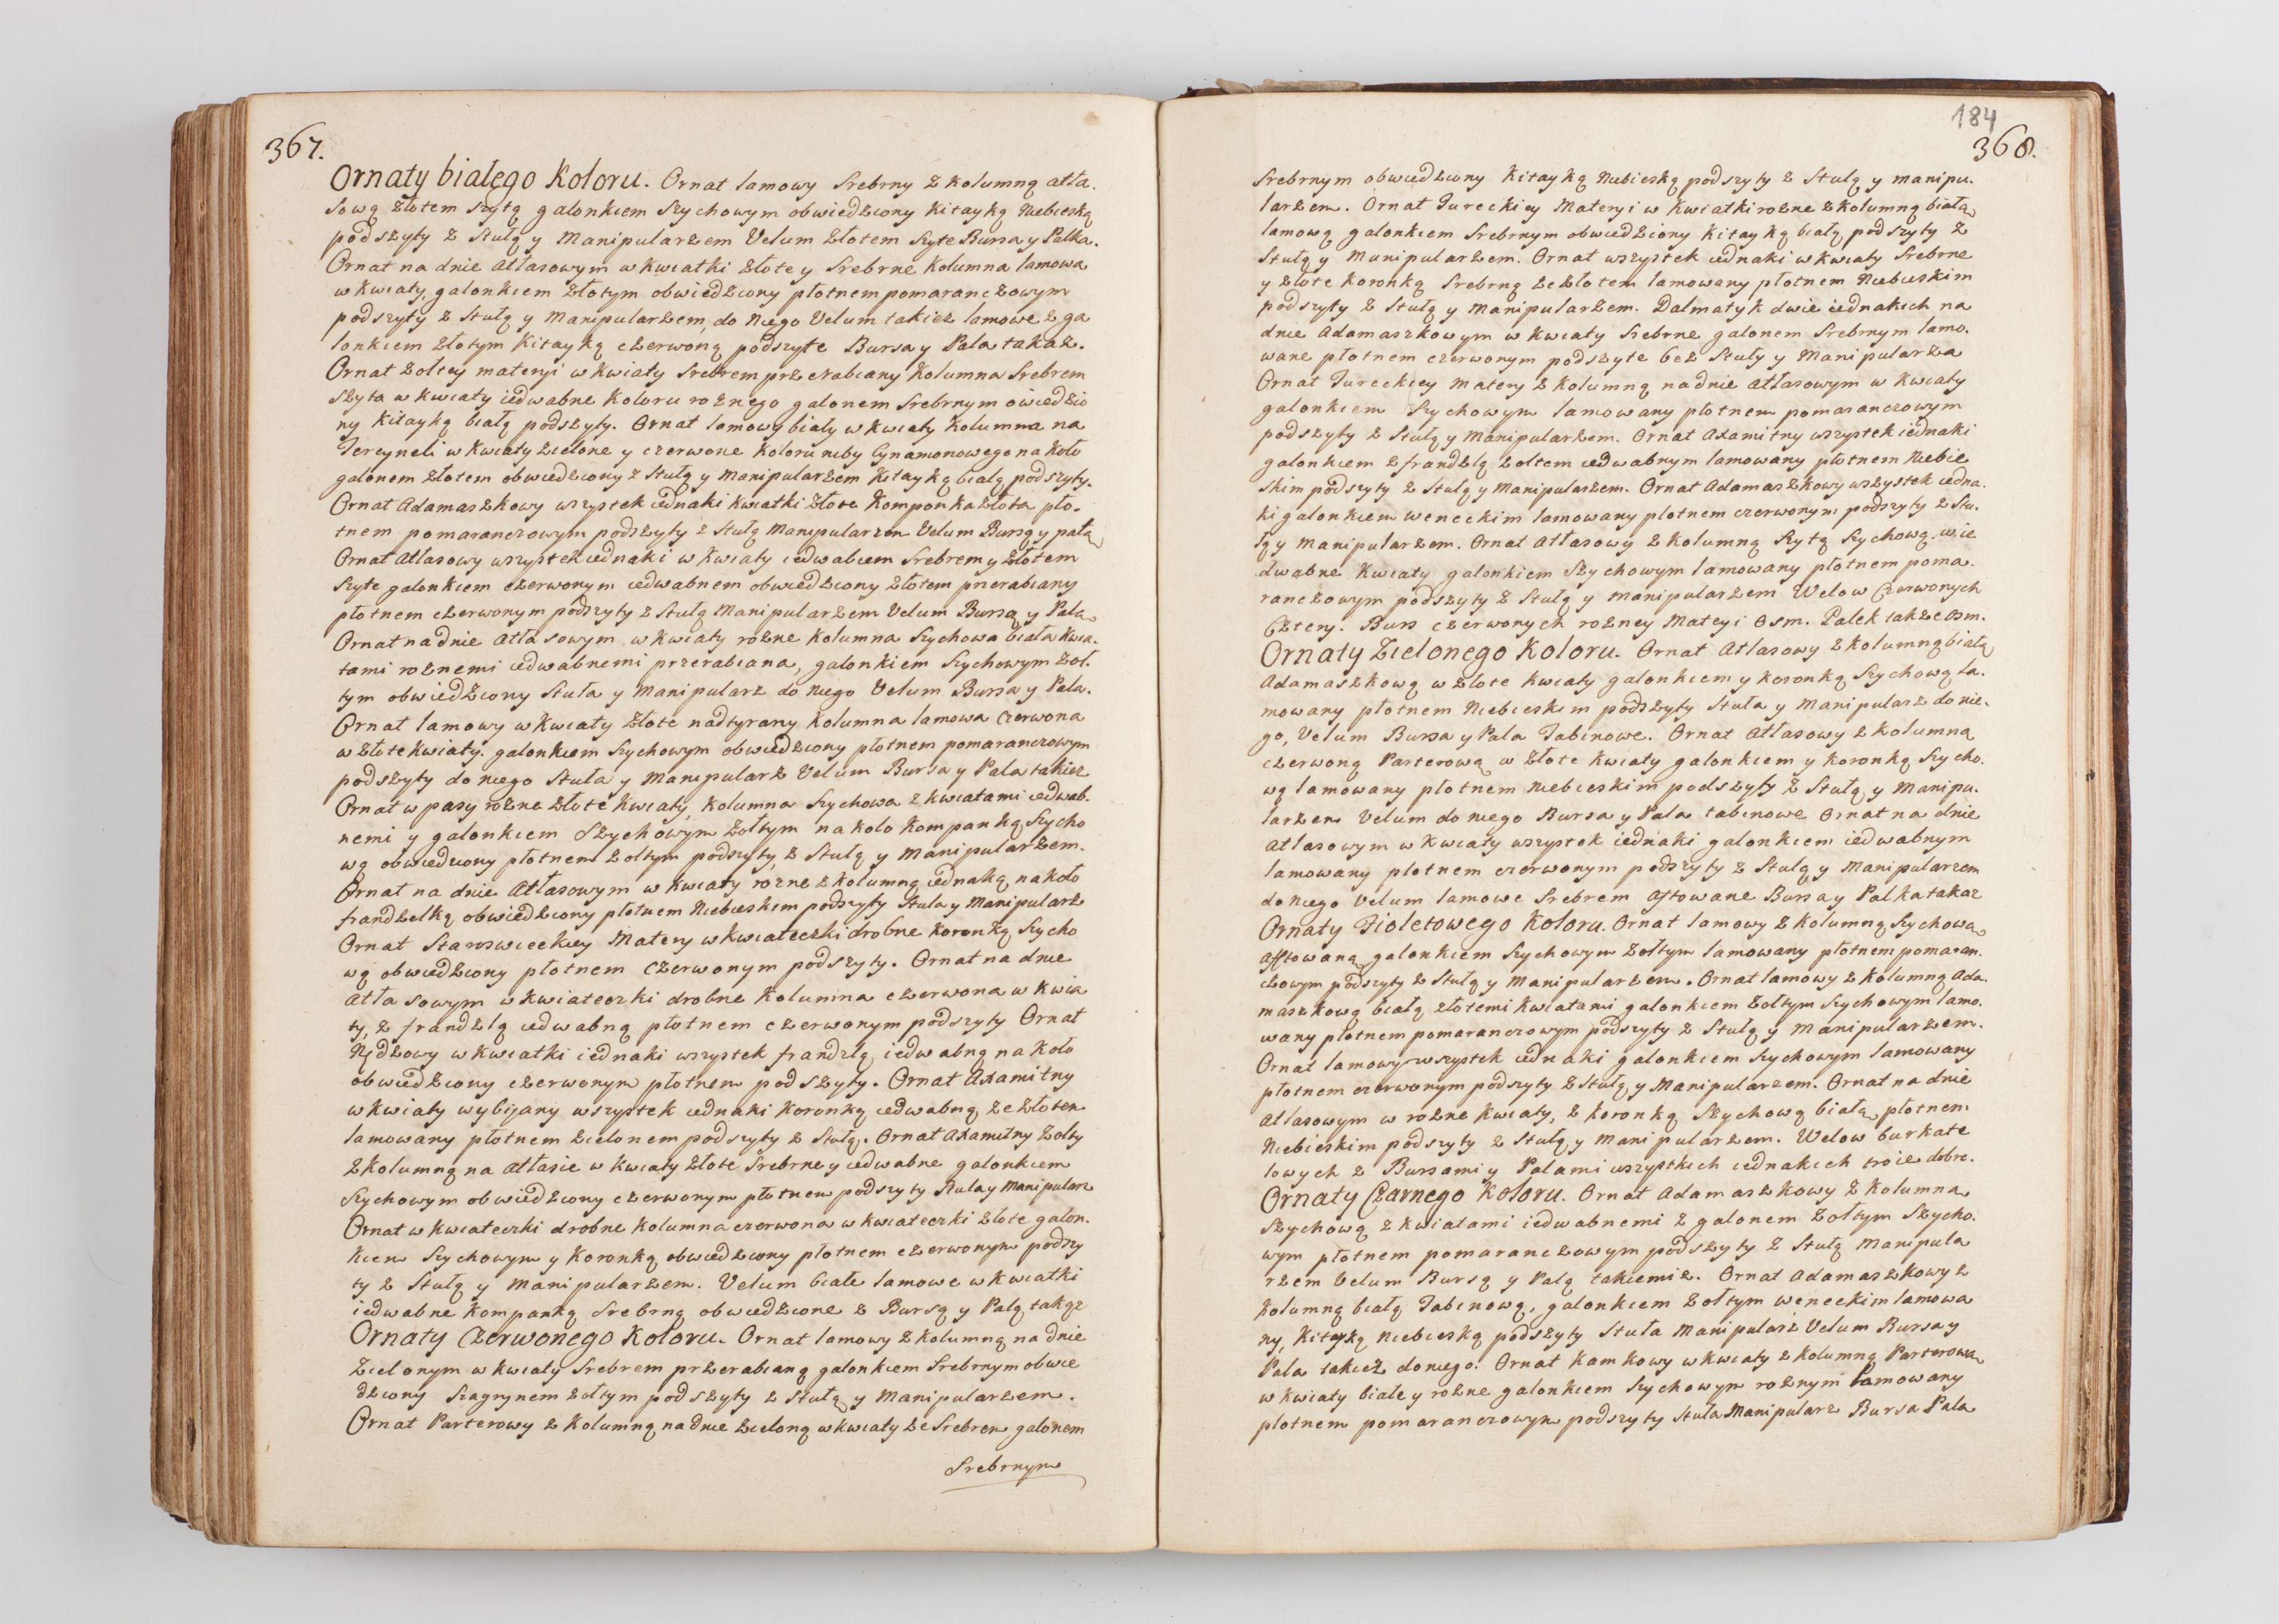 367.
Ornaty białego Koloru. Ornat lamowy Srebrny z kolumną atła.
sową złotem szytą galonkiem szychowym obwiedziony Kitayką Niebieską
podszyty z Stułą y Manipularzem Velum złotem szyte Bursa y Palka.
Ornat na dnie Atłasowym w kwiatki złote y Srebrne Kolumna lamowa
w kwiaty, galonkiem złotym obwiedziony płotnem pomaranczowym
podszyty z Stułą y Manipularzem, do Niego Velum takiez lamowe z ga
lonkiem złotym Kitayką czerwoną podszyte Bursa y Pala takaz.
Ornat żołtey materyi w kwiaty Srebrem przerabiany Kolumna Srebrem
szyta w kwiaty iedwabne Koloru roznego galonem Srebrnym owiedzio
ny Kitayką białą podszyty. Ornat lamowy biały w kwiaty Kolumna na
Tercyneli w kwiaty zielone y czerwone Koloru niby Cynamonowego na koło
galonem złotem obwiedziony z Stułą y Manipularzem Kitayką białą podszyty.
Ornat Adamaszkowy wszystek iednaki kwiatki złote Komponka złota pło.
tnem pomaranczowym podszyty z Stułą Manipularzem Velum Bursą y palą
Ornat Atłasowy wszystek iednaki w kwiaty iedwabiem Srebrem y złotem
szyte galonkiem czerwonym iedwabnem obwiedziony złotem przerabiany
płotnem czerwonym podszyty z Stułą Manipularzem Velum Bursą y Pala
Ornat na dnie Atłasowym w kwiaty rozne Kolumna szychowa biała kwia.
tami roznemi iedwabnemi przerabiana, galonkiem szychowym żoł.
tym obwiedziony Stuła y Manipularz do niego Velum Bursa y Pala.
Ornat lamowy w kwiaty złote nadtyrany Kolumna lamowa czerwona
w złote kwiaty. galonkiem szychowym obwiedziony płotnem pomaranczowym
podszyty do niego Stuła y Manipularz Velum Bursa y Pala takiez
Ornat w pasy rozne złote kwiaty, kolumna szychowa z kwiatami iedwab.
nemi y galonkiem szychowym żołtym na koło Kompanką szycho
wą obwiedziony płotnem żołtym podszyty, z Stułą y Manipularzem.
Ornat na dnie Atłasowym w kwiaty rozne z kolumną iednaką na koło
frandzelką obwiedziony płotnem Niebieskim podszyty Stuła y Manipularz
Ornat Staroswieckiey Matery w kwiateczki drobne koronką szycho
wą obwiedziony płotnem czerwonym podszyty. Ornat na dnie
Atłasowym w kwiateczki drobne Kolumna czerwona w kwia
ty, z frandzlą iedwabną płotnem czerwonym podszyty Ornat
Rydzowy w kwiatki iednaki wszystek frandzlą iedwabną na koło
obwiedziony czerwonym płotnem podszyty. Ornat Axamitny
w kwiaty wybijany wszystek iednaki koronką iedwabną ze złotem
lamowany płotnem zielonem podszyty z Stułą. Ornat Axamitny żołty
z kolumną na Atłasie w kwiaty złote Srebrne y iedwabne galonkiem
szychowym obwiedziony czerwonym płotnem podszyty Stuła y Manipularz
Ornat w kwiateczki drobne kolumna czerwona w kwiateczki złote galon.
kiem szychowym y koronką obwiedziony płotnem czerwonym podszy
ty z Stułą y Manipularzem. Velum białe lamowe w kwiatki
iedwabne Kompanką Srebrną obwiedzione z Bursą y Palą takąz
Ornaty Czerwonego Koloru. Ornat lamowy z kolumną na dnie
zielonym w kwiaty Srebrem przerabianą galonkiem Srebrnym obwie
dziony Szagrynem żołtym podszyty z Stułą y Manipularzem.
Ornat Parterowy z Kolumną na dnie zieloną w kwiaty ze Srebrem galonem
Srebrnym
184
368.
Srebrnym obwiedziony Kitayką Niebieską podszyty z Stułą y Manipu.
larzem. Ornat Tureckiey Materyi w kwiatki rozne z kolumną białą
lamową galonkiem Srebrnym obwiedziony Kitayką białą podszyty z
Stułą y Manipularzem. Ornat wszystek iednaki w kwiaty Srebrne
y złote koronką Srebrną ze złotem lamowany płotnem Niebieskim
podszyty z Stułą y Manipularzem. Dalmatyk dwie iednakich na
dnie Adamaszkowym w kwiaty Srebrne galonem Srebrnym lamo.
wane płotnem czerwonym podszyte bez Stuły y Manipularza
Ornat Tureckiey Matery z kolumną na dnie Atłasowym w kwiaty
galonkiem szychowym lamowany płotnem pomaranczowym
podszyty z Stułą y Manipularzem. Ornat Axamitny wszystek iednaki
galonkiem z frandzlą żołtem iedwabnym lamowany płotnem Niebie
skim podszyty z Stułą y Manipularzem. Ornat Adamaszkowy wszystek iedna.
ki galonkiem weneckim lamowany płotnem czerwonym podszyty z Stu.
łą y Manipularzem. Ornat Atłasowy z kolumną szytą szychową w ie
dwabne kwiaty galonkiem szychowym lamowany płotnem poma.
ranczowym podszyty z Stułą y Manipularzem Welow Czerwonych
Cztery. Burs czerwonych rozney Materyi osm. Palek także osm.
Ornaty Zielonego Koloru. Ornat Atłasowy z kolumną białą
Adamaszkową w złote kwiaty galonkiem y koronką szychową la.
mowany płotnem Niebieskim podszyty Stuła y Manipularz do nie.
go, Velum Bursa y Pala Tabinowe. Ornat Atłasowy z kolumną
czerwoną Parterową w złote kwiaty galonkiem y koronką szycho.
wą lamowany płotnem niebieskim podszyty z Stułą y Manipu.
larzem Velum do niego Bursa y Pala tabinowe Ornat na dnie
Atlasowym w kwiaty wszystek iednaki galonkiem iedwabnym
lamowany płotnem czerwonym podszyty z Stułą y Manipularzem
do niego Velum lamowe Srebrem aftowane Bursa y Palka takaz
Ornaty Fioletowego Koloru. Ornat lamowy z kolumną szychową
afftowaną galonkiem szychowym żołtym lamowany płotnem pomaran.
czowym podszyty z Stułą y Manipularzem. Ornat lamowy z kolumną Ada.
maszkową białą złotemi kwiatami galonkiem żołtym szychowym lamo.
wany płotnem pomaranczowym podszyty z Stułą y Manipularzem.
Ornat lamowy wszystek iednaki galonkiem szychowym lamowany
płotnem czerwonym podszyty z Stułą y Manipularzem. Ornat na dnie
Atłasowym w rozne kwiaty, z koronką szychową białą płotnem
Niebieskim podszyty z Stułą y Manipularzem. Welow burkate
lowych z Bursami y Palami wszystkich iednakich troie dobre.
Ornaty Czarnego Koloru. Ornat Adamaszkowy z kolumna
szychową z kwiatami iedwabnemi z galonem żołtym szycho.
wym płotnem pomaranczowym podszyty z Stułą Manipula
rzem Velum Bursą y Palą takiemiz. Ornat Adamaszkowy z
kolumną białą Tabinową, galonkiem żołtym weneckim lamowa
ny, Kitayką niebieską podszyty Stuła Manipularz Velum Bursa y
Pala takież do niego. Ornat Kamkowy w kwiaty z kolumną Parterową
w kwiaty białe y rozne galonkiem szychowym roznym lamowany
płotnem pomaranczowym podszyty Stuła Manipularz Bursa Pala